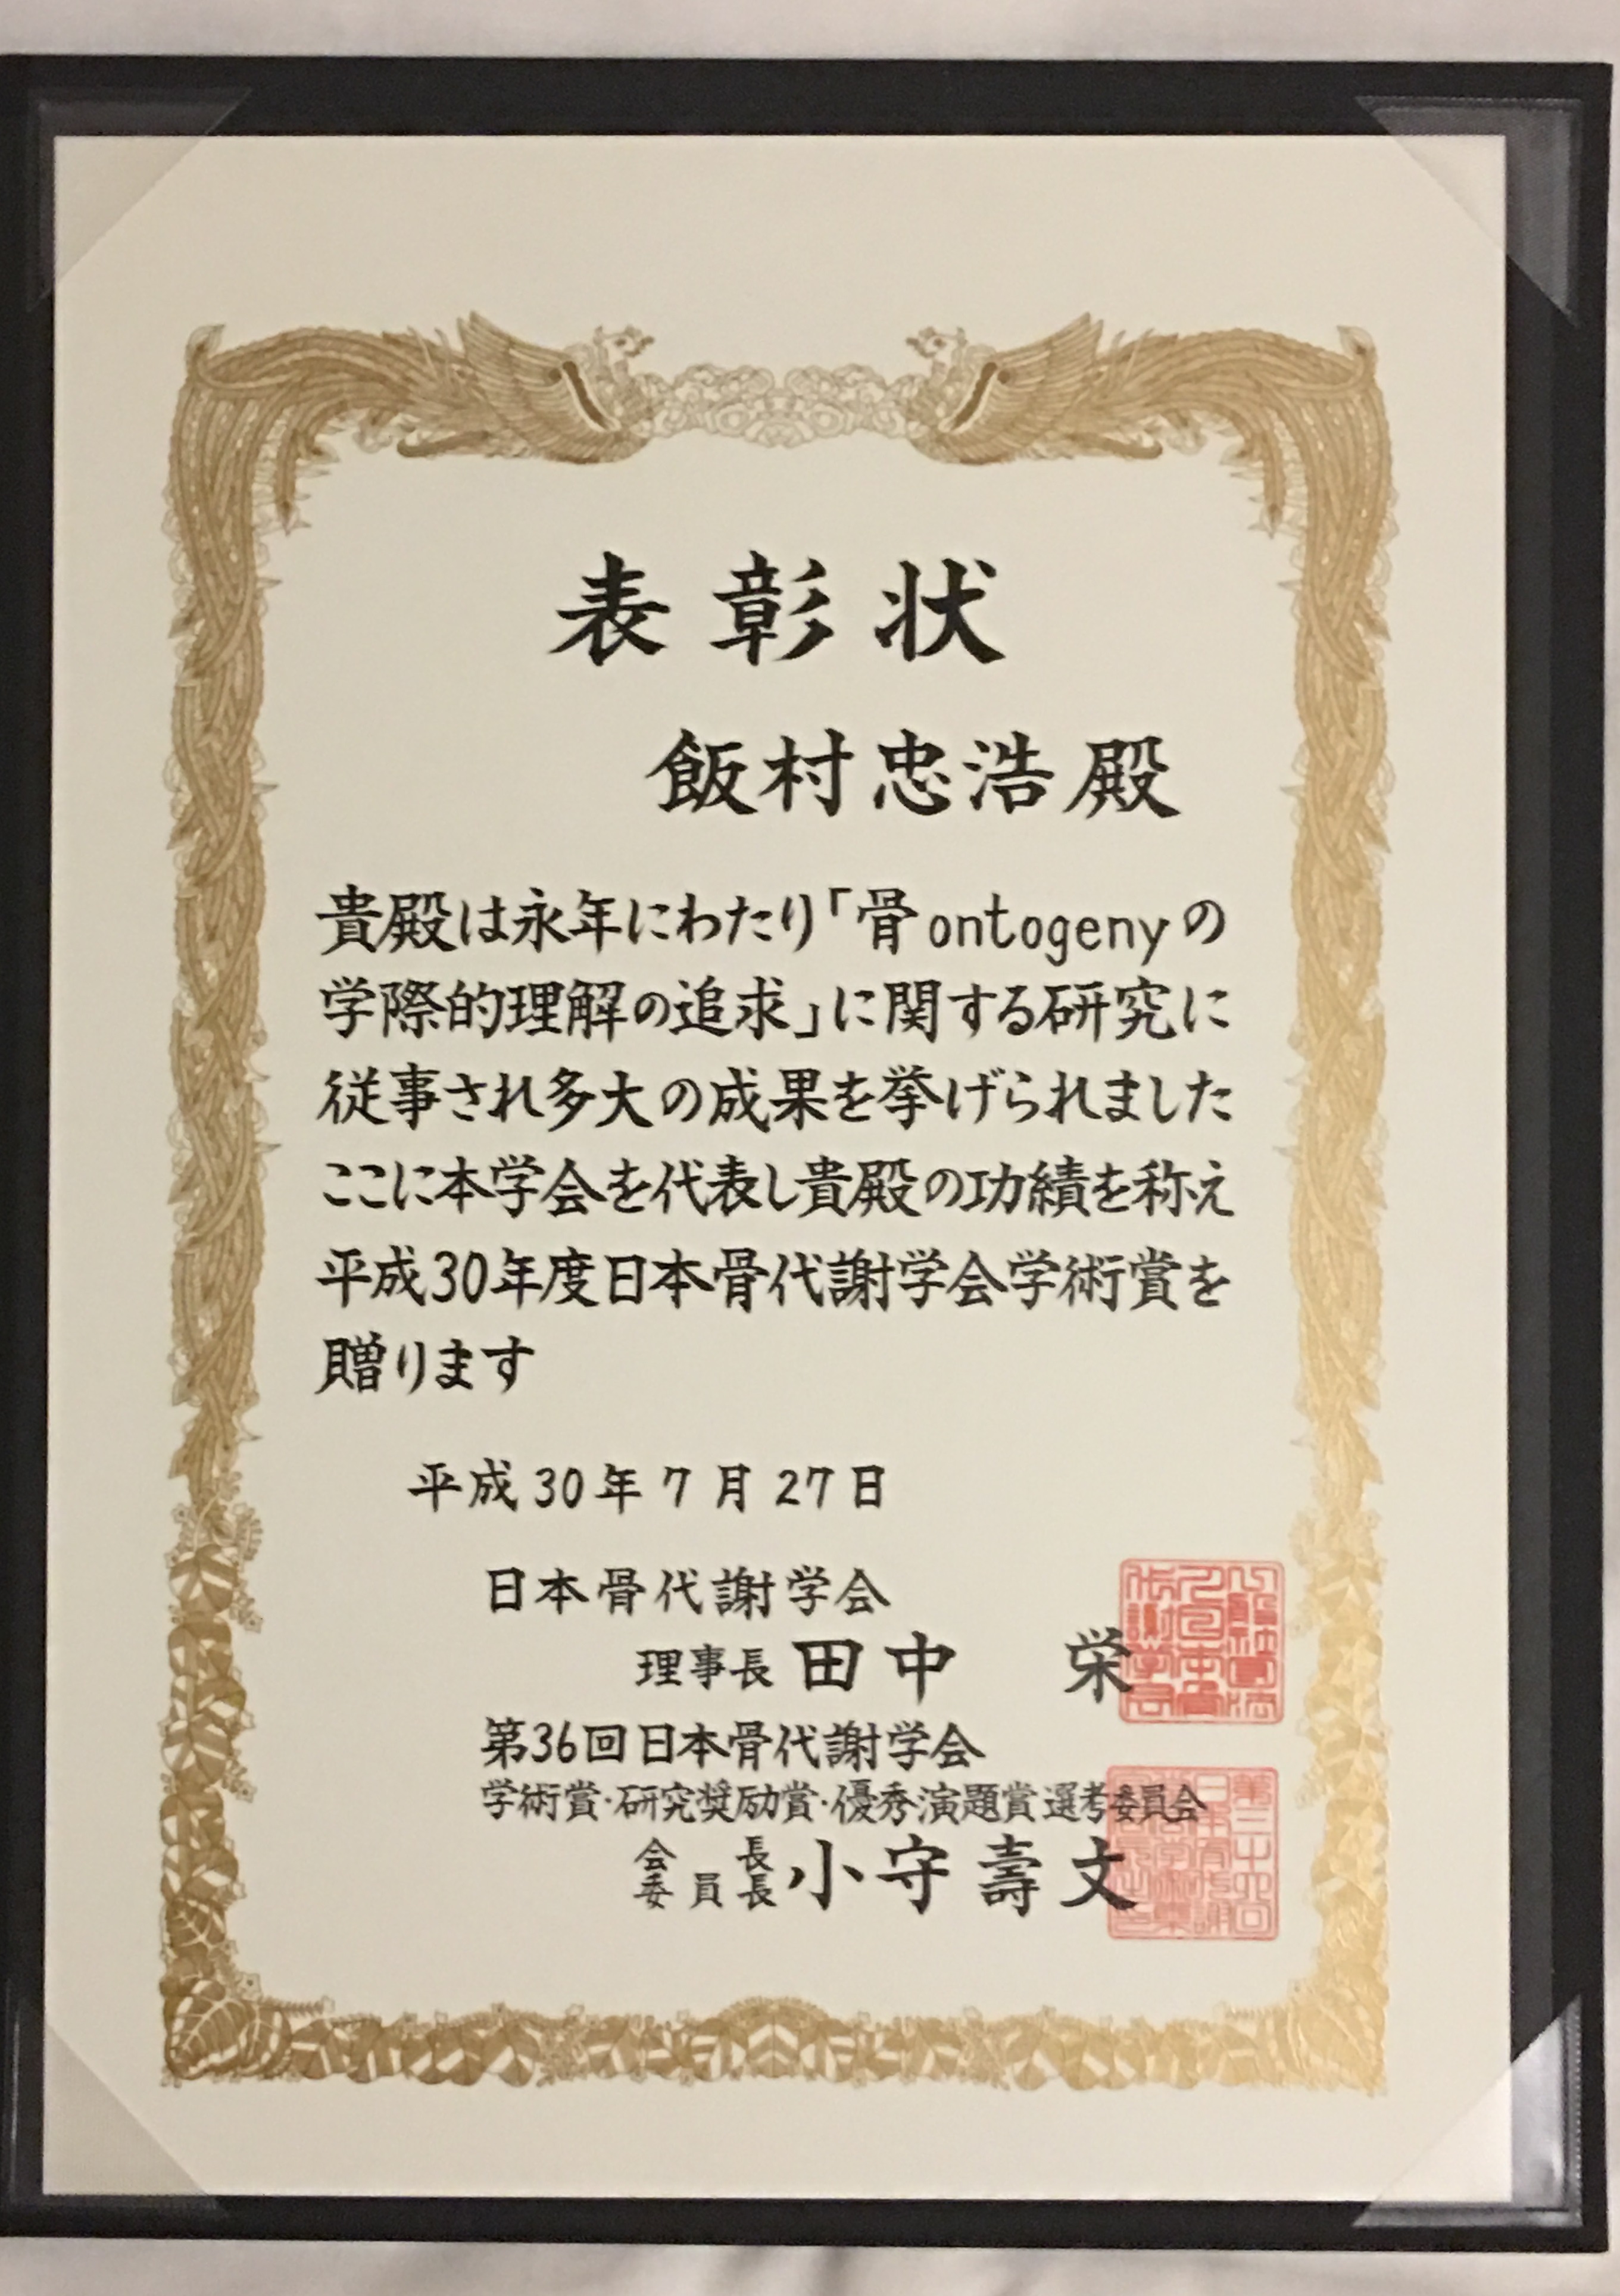 表彰状
飯村忠浩殿
貴殿は永年にわたり「骨ontogenyの
学際的理解の追求」に関する研究に
従事され多大の成果を挙げられました
ここに本学会を代表し貴殿の功績を称え
平成30年度日本骨代謝学会学術賞を
贈ります
平成30年7月27日
日本骨代謝学会
理事長 田中 栄
第36回日本骨代謝学会
学術賞・研究奨励賞・優秀演題賞選考委員会
会長
委員長 小守壽文